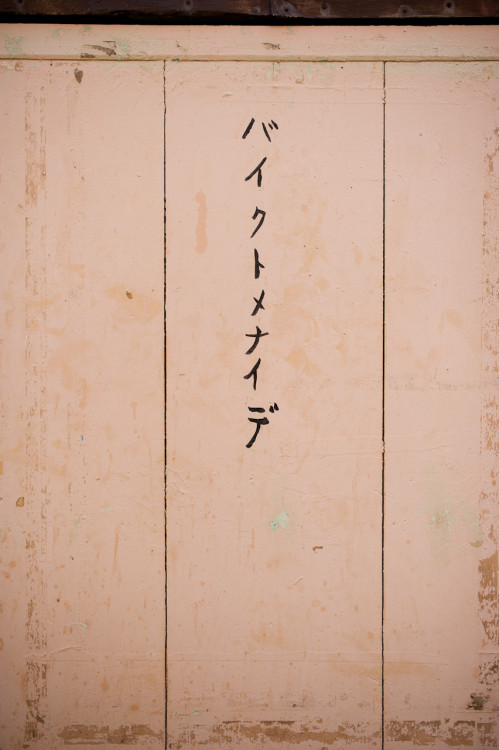 バイクトメナイデ